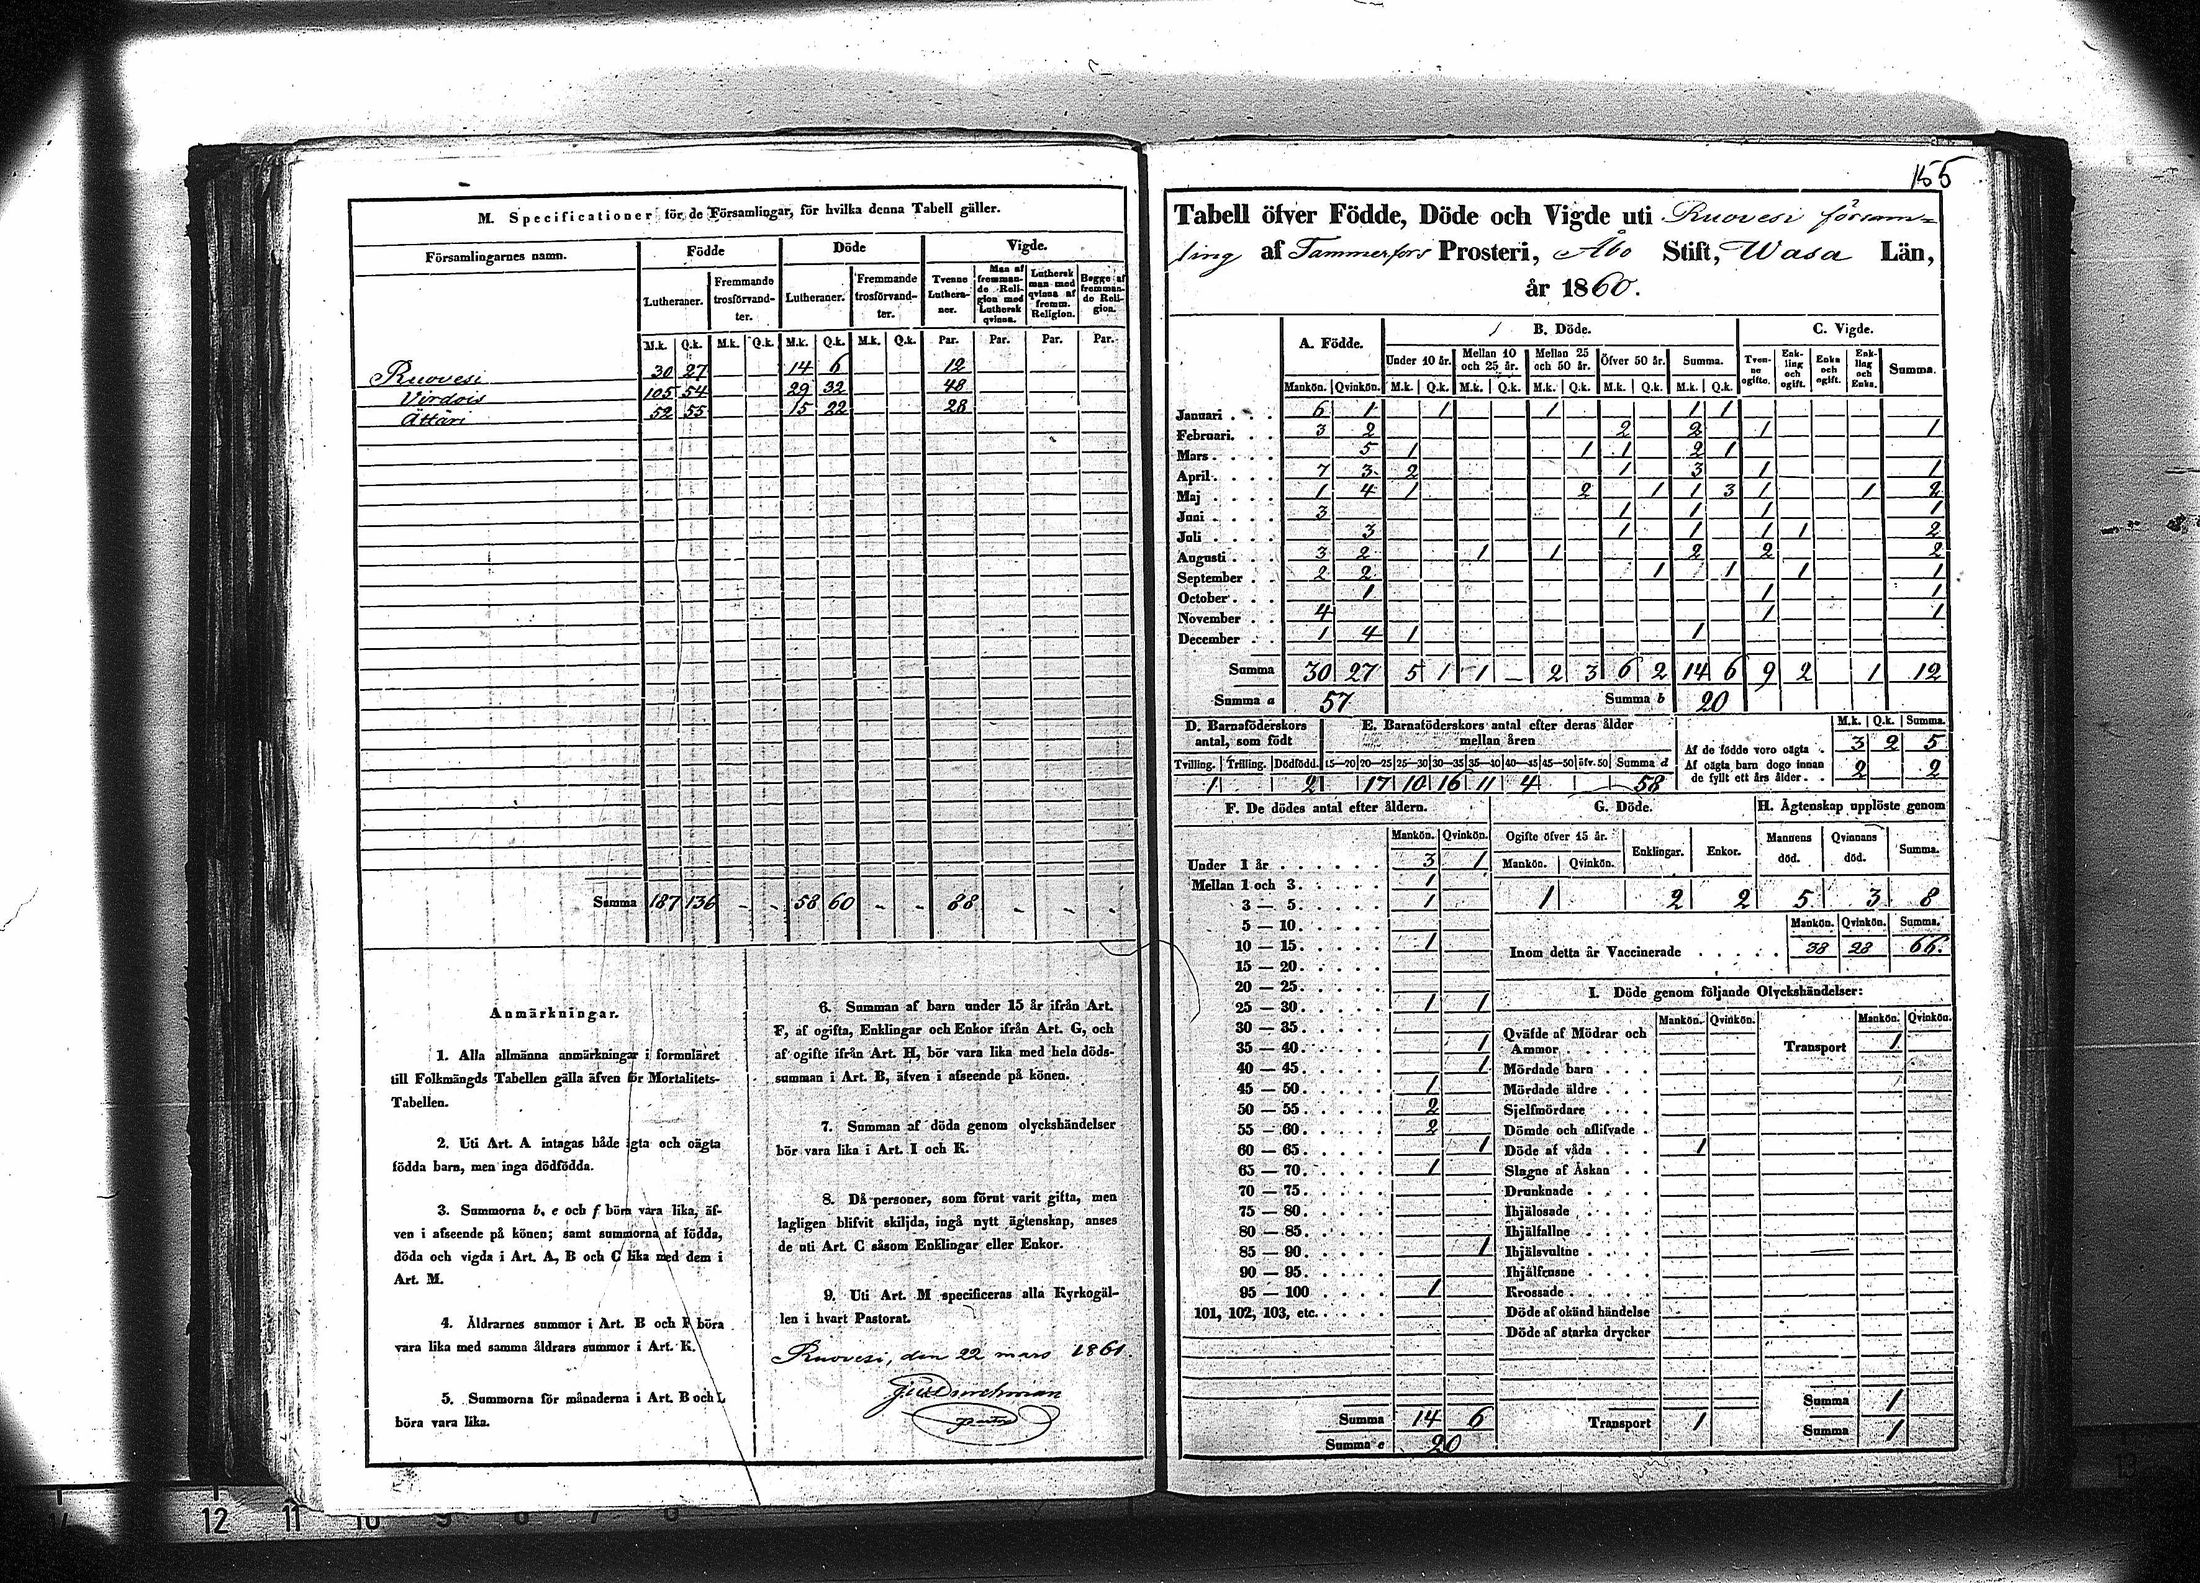 M. Specificationer för de Församlingar, för hvilka denna Tabell gäller.
Församlingarnes namn. Födde Döde Vigde.
Lutheraner. Fremmande trosförvandter. Lutheraner. Fremmande trosförvandter. Tvenne Lutheraner. Man af fremmande Religion med Luthersk qvinna. Luthersk man med qvinna af fremm. Religion. Begge af fremmande Religion.
M.k. Q.k. M.k. Q.k. M.k. Q.k. M.k. Q.k. Par. Par. Par. Par.
Ruovesi 30 27 14 6 12
Virdois 105 54 29 32 48
Ättäri 52 55 15 22 28
Summa 187 136 - - 58 60 - - 88 - - -
Anmärkningar.
1. Alla allmänna anmärkningar i formuläret
till Folkmängds Tabellen gälla äfven för Mortalitets-
Tabellen.
2. Uti Art. A intagas både ägta och oägta
födda barn, men inga dödfödda.
3. Summorna b, e och f böra vara lika, äf-
ven i afseende på könen; samt summorna af födda,
döda och vigda i Art. A, B och C lika med dem i
Art. M.
4. Åldrarnes summor i Art. B och F böra
vara lika med samma åldrars summor i Art. K.
5. Summorna för månaderna i Art. B och L
böra vara lika.
6. Summan af barn under 15 år ifrån Art.
F, af ogifta, Enklingar och Enkor ifrån Art. G, och
af ogifte ifrån Art. H, bör vara lika med hela döds-
summan i Art. B, äfven i afseende på könen.
7. Summan af döda genom olyckshändelser
bör vara lika i Art. I och K.
8. Då personer, som förut varit gifta, men
lagligen blifvit skiljda, ingå nytt ägtenskap, anses
de uti Art. C såsom Enklingar eller Enkor.
9. Uti Art. M specificeras alla Kyrkogäl-
len i hvart Pastorat.
Ruovesi, den 22 mars 1861.
155
Tabell öfver Födde, Döde och Vigde uti Ruovesi församling
af Tammerfors Prosteri, Åbo Stift, Wasa Län,
år 1860.
A. Födde. B. Döde. C. Vigde.
Under 10 år. Mellan 10 och 25 år. Mellan 25 och 50 år. Öfver 50 år. Summa. Tvenne ogifte. Enkling och ogift. Enka och ogift. Enkling och Enka. Summa.
Mankön. Qvinkön. M.k. Q.k. M.k. Q.k. M.k. Q.k. M.k. Q.k. M.k. Q.k.
Januari 6 1 1 1 1 1
Februari. 3 2 2 2 1 1
Mars 5 1 1 1 2 1
April. 7 3 2 1 3 1 1
Maj 1 4 1 2 1 1 3 1 1 2
Juni 3 1 1 1 1
Juli 3 1 1 1 1 2
Augusti 3 2 1 1 2 2 2
September 2 2 1 1 1 1
October 1 1 1
November 4 1 1
December 1 4 1 1
Summa 30 27 5 1 1 - 2 3 6 2 14 6 9 2 1 12
Summa a 57 Summa b 20
D. Barnaföderskors antal, som födt
Tvilling. Trilling. Dödfödd.
1 2
E. Barnaföderskors antal efter deras ålder mellan åren
15—20 20—25 25—30 30—35 35—40 40—45 45—50 öfv. 50 Summa d
17 10 16 11 4 58
M.k. Q.k. Summa.
Af de födde voro oägta 3 2 5
Af oägta barn dogo innan de fyllt ett års ålder 2 2
F. De dödes antal efter åldern.
Mankön. Qvinkön.
Under 1 år 3 1
Mellan 1 och 3. 1
3 — 5. 1
5 — 10.
10 — 15. 1
15 — 20.
20 — 25.
25 — 30. 1 1
30 — 35.
35 — 40. 1
40 — 45. 1
45 — 50. 1
50 — 55. 2
55 — 60. 2
60 — 65. 1
65 — 70. 1
70 — 75.
75 — 80.
80 — 85.
85 — 90. 1
90 — 95.
95 — 100 1
101, 102, 103, etc.
Summa 14 6
Summa e 20
G. Döde.
Ogifte öfver 15 år. Enklingar. Enkor.
Mankön. Qvinkön.
1 2 2
H. Ägtenskap upplöste genom
Mannens död. Qvinnans död. Summa.
5 3 8
Mankön. Qvinkön. Summa.
Inom detta år Vaccinerade 38 28 66.
I. Döde genom följande Olyckshändelser:
Mankön. Qvinkön. Mankön. Qvinkön.
Qväfde af Mödrar och
Ammor Transport 1
Mördade barn
Mördade äldre
Sjelfmördare
Dömde och aflifvade
Döde af våda 1
Slagne af Åskan
Drunknade
Ihjälosade
Ihjälfallne
Ihjälsvultne
Ihjälfrusne
Krossade
Döde af okänd händelse
Döde af starka drycker
Summa 1
Transport 1 Summa 1
12 11 10 9 8 7 6
13